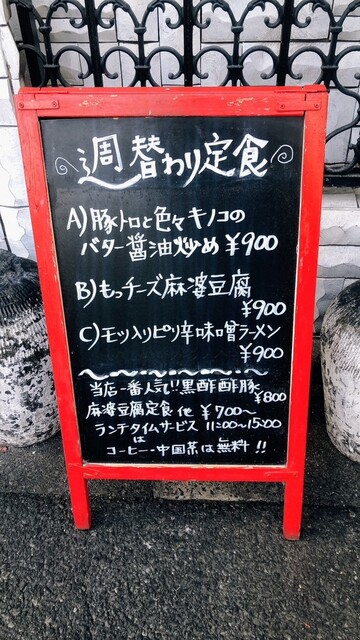 週替わり定食
A)豚トロと色々キノコの
バター醤油炒め ¥900
B)もっチーズ麻婆豆腐
¥900
C)モツ入りピリ辛味噌ラーメン
¥900
当店一番人気!!黒酢酢豚
¥800
麻婆豆腐定食 他 ¥700〜
ランチタイムサービス 11:00〜15:00
は
コーヒー・中国茶は無料!!